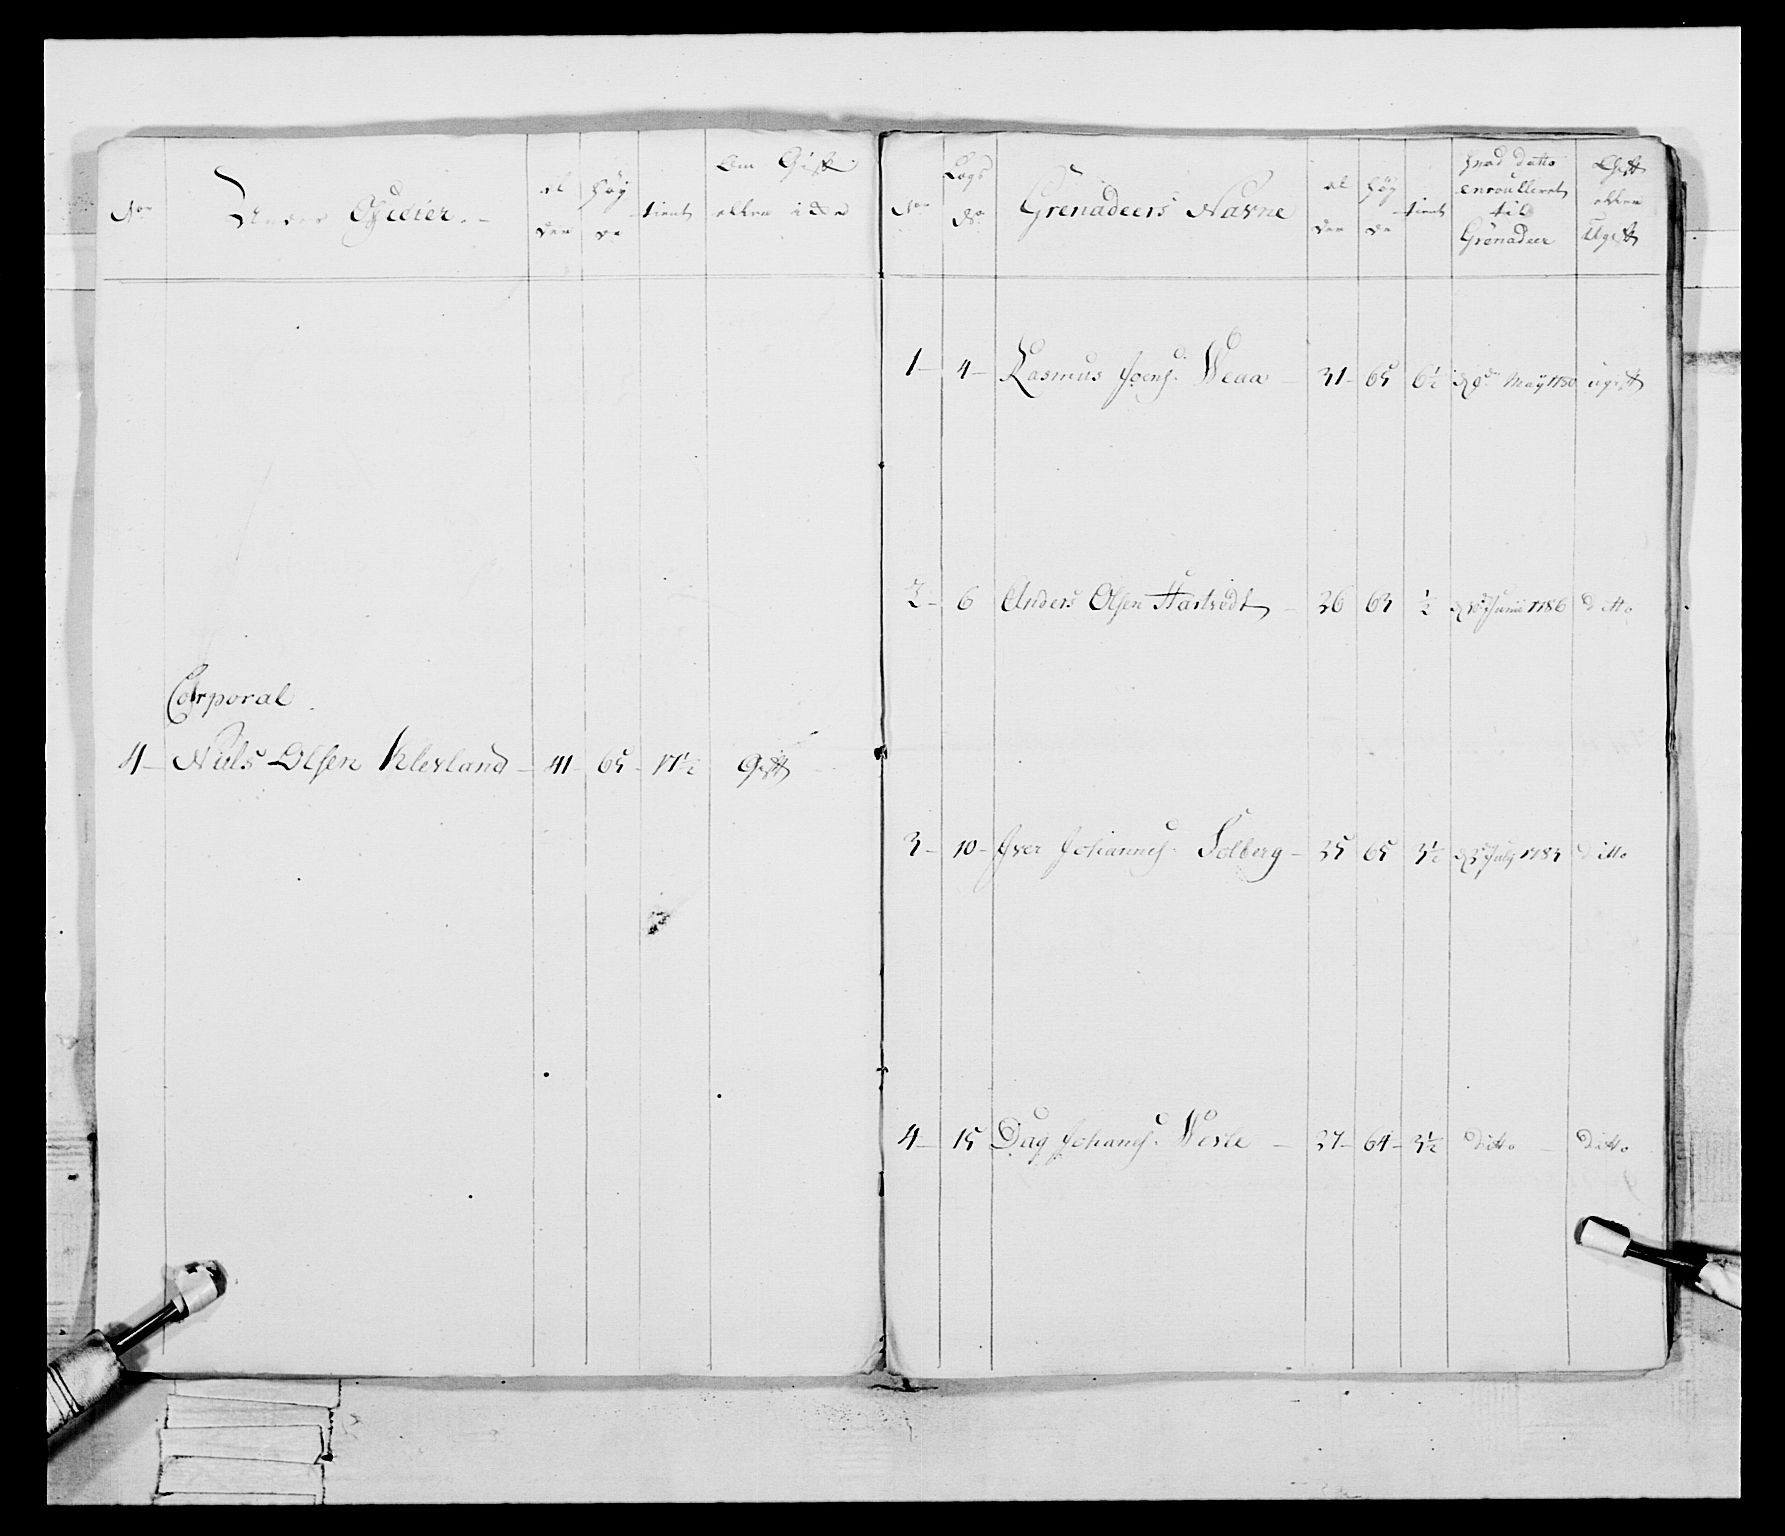 Nor
Under Officier.
al
der
Høy
de
tient
Om Gift
eller icke
Corporal
4 Niels Olsen Klevland 41 65 17½ Gift
Nor
Lægs
No
Grenadeers Navne
al
der
Høy
de
tient
hvad datto
enroulleret
til
Grenadeer
Gift
eller
Ugift
1 4 Rasmus Joens. Weaa 31 65 6½ d 9de May 1780 ugift
2 6 Anders Olsen Hastvedt 26 63 ½ Junii 1786 ditto
3 10 Iver Johannes. Solberg 25 65 3½ July 1783 ditto
4 15 Dag Johanes. Wesle 27 64 3½ ditto ditto